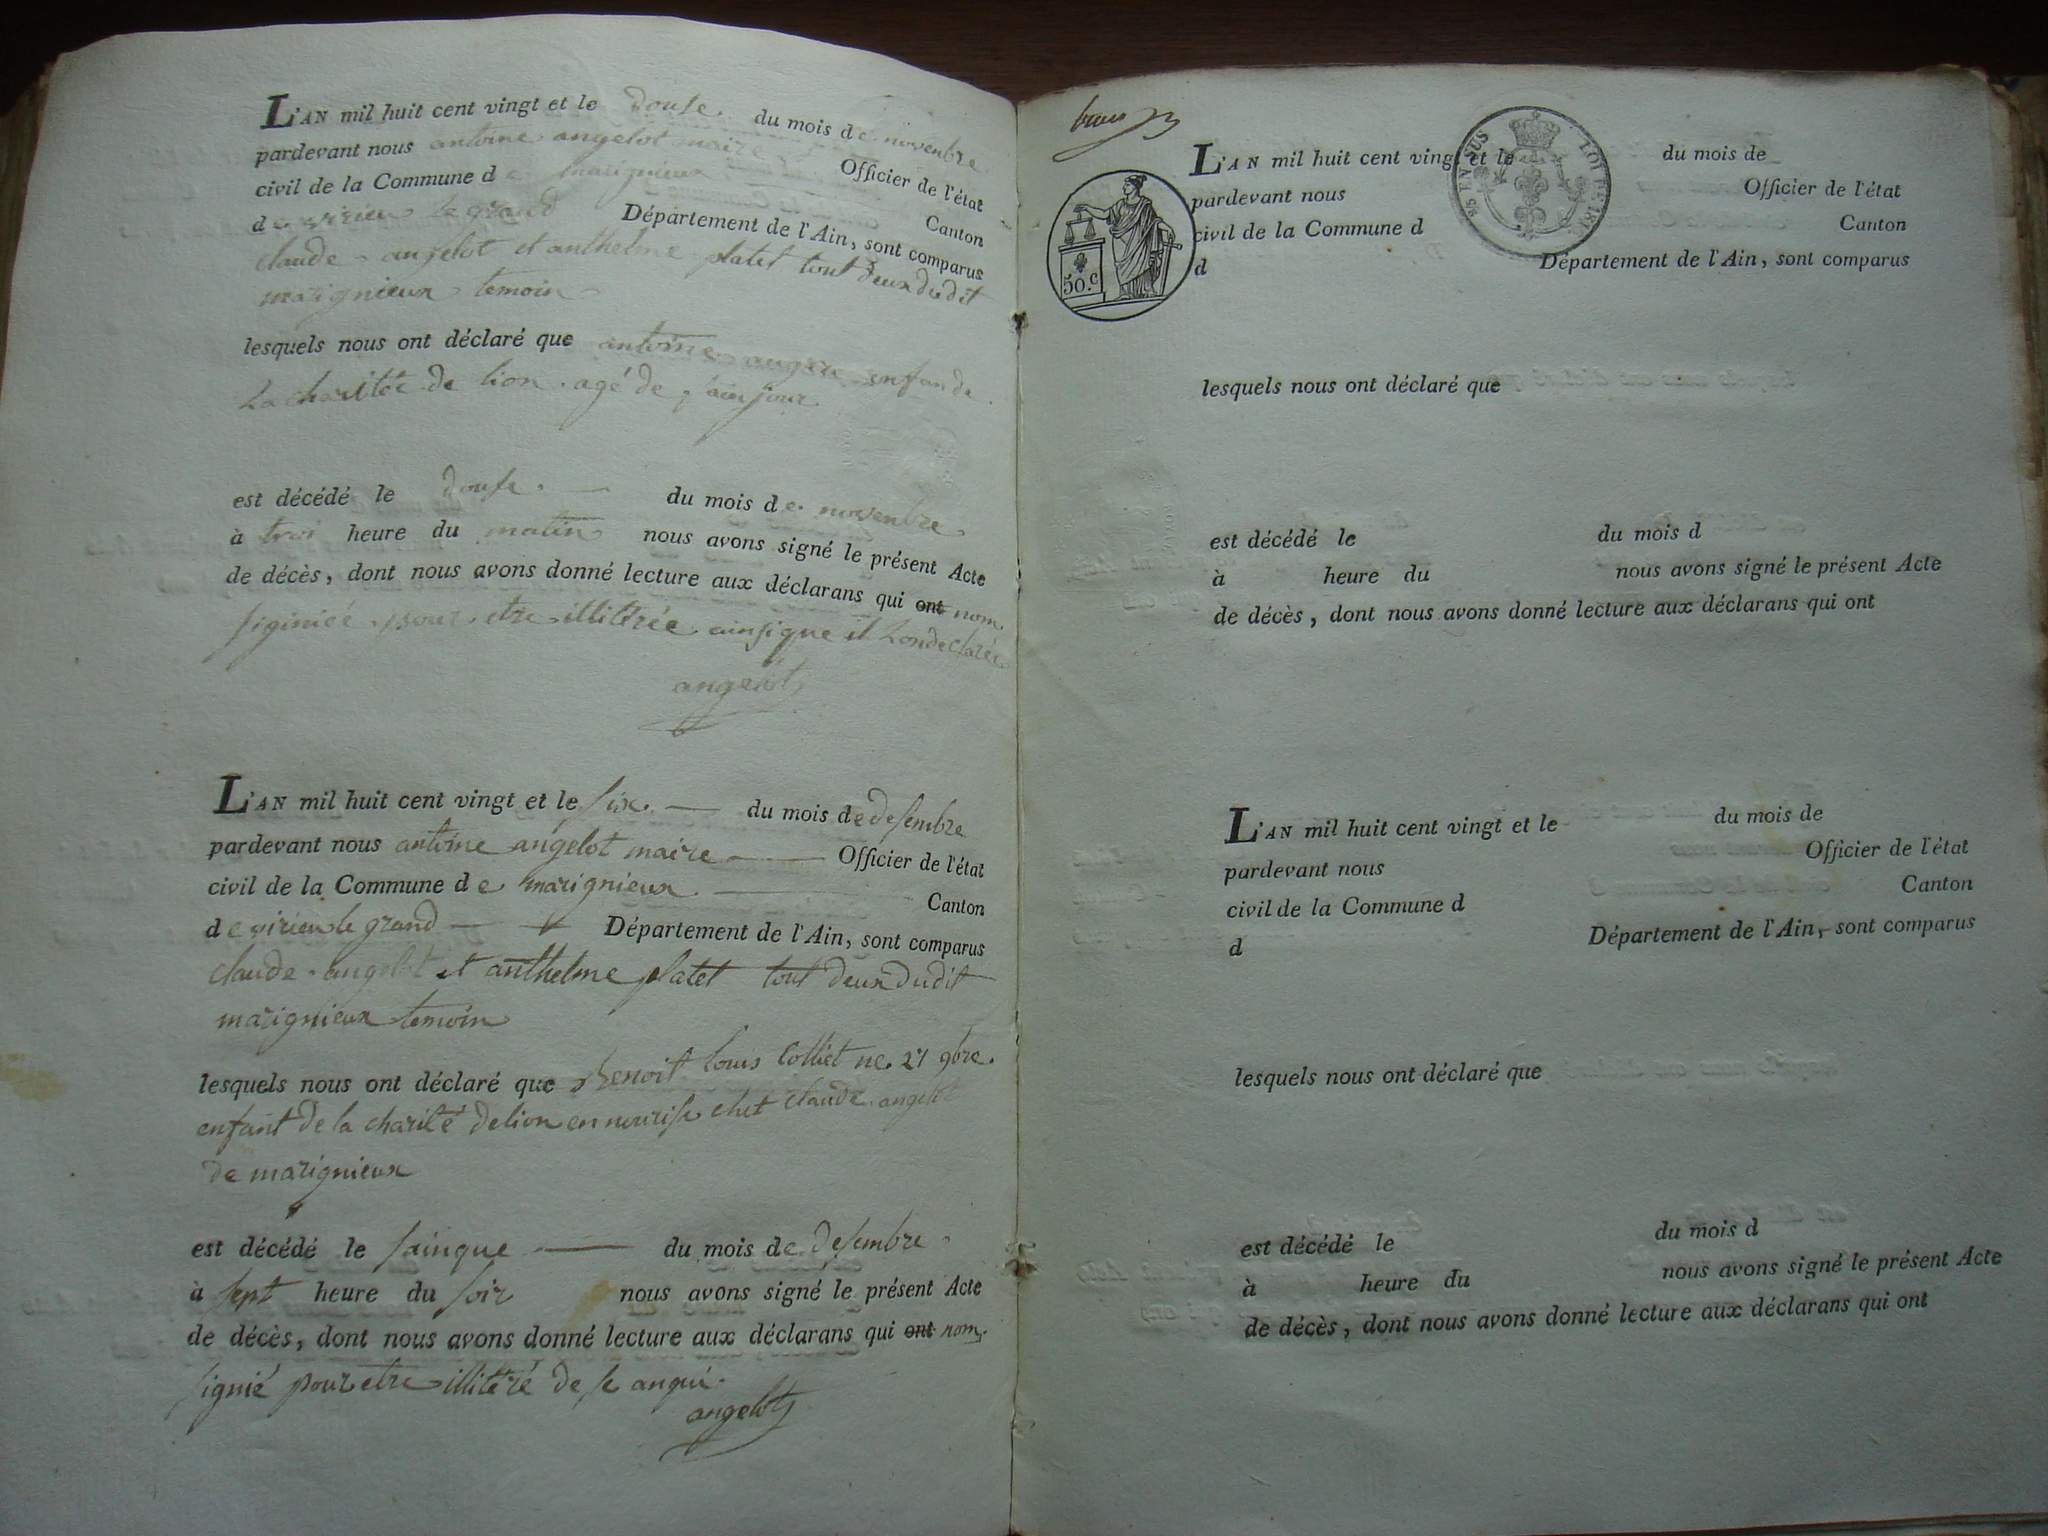 L'AN mil huit cent vingt et le douse du mois de novembre
pardevant nous antoine angelot maire Officier de l'état
civil de la Commune de marignieux Canton
de virieu le grand Département de l'Ain, sont comparus
claude angelot et anthelme platet tout deux dudit
marignieux temoin
lesquels nous ont déclaré que antoine enfan de
La charitée de lion agé de jour
est décédé le douse du mois de novembre
à troi heure du matin nous avons signé le présent Acte
de décès, dont nous avons donné lecture aux déclarans qui ont nom
siginiéé pour etre illitérée ainsique il Londeclarée
angelot
L'AN mil huit cent vingt et le six du mois de desembre
pardevant nous antoine angelot maire Officier de l'état
civil de la Commune de marignieux Canton
de virieu le grand Département de l'Ain, sont comparus
claude angelot et anthelme platet tout deux dudit
marignieux temoin
lesquels nous ont déclaré que Benoit Louis Colliet ne 27 9bre
enfant de la charité de lion en nourise chet claude angelot
de marignieux
est décédé le sainque du mois de desembre
à sept heure du soir nous avons signé le présent Acte
de décès, dont nous avons donné lecture aux déclarans qui ont nom
signié pour etre illitéré de se anqui
angelot
50.c
EN SUS
L'AN mil huit cent vingt et le du mois de
pardevant nous Officier de l'état
civil de la Commune d Canton
d Département de l'Ain, sont comparus
lesquels nous ont déclaré que
est décédé le du mois d
à heure du nous avons signé le présent Acte
de décès, dont nous avons donné lecture aux déclarans qui ont
L'AN mil huit cent vingt et le du mois de
pardevant nous Officier de l'état
civil de la Commune d Canton
d Département de l'Ain, sont comparus
lesquels nous ont déclaré que
est décédé le du mois d
à heure du nous avons signé le présent Acte
de décès, dont nous avons donné lecture aux déclarans qui ont